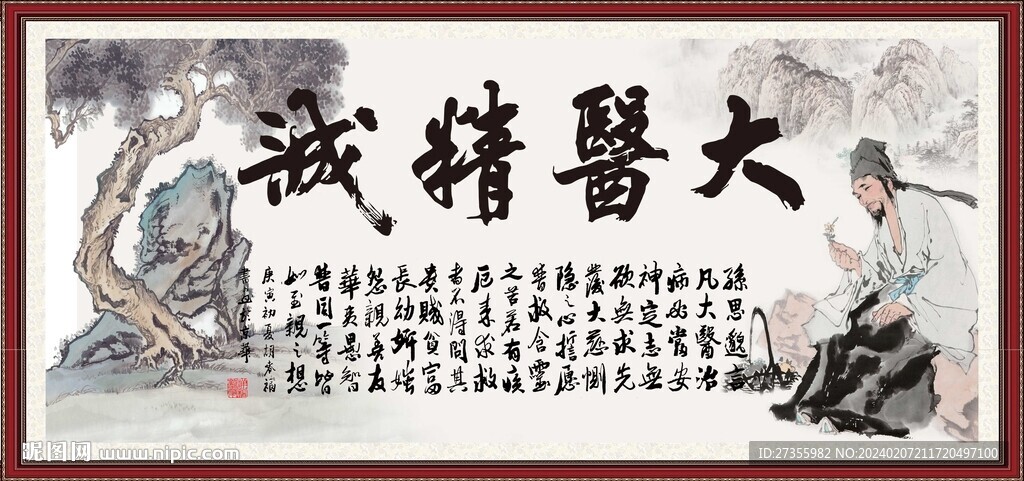 大醫精誠
孫思邈言
凡大醫治
病必當安
神定志無
欲無求先
發大慈惻
隐之心誓愿
普救含靈
之苦若有疾
厄来求救
者不得問其
贵賤貧富
長幼妍媸
怨親善友
華夷愚智
普同一等皆
如至親之想
庚寅初夏
書於京華
昵图网 www.nipic.com
ID:27355982 NO:20240207211720497100